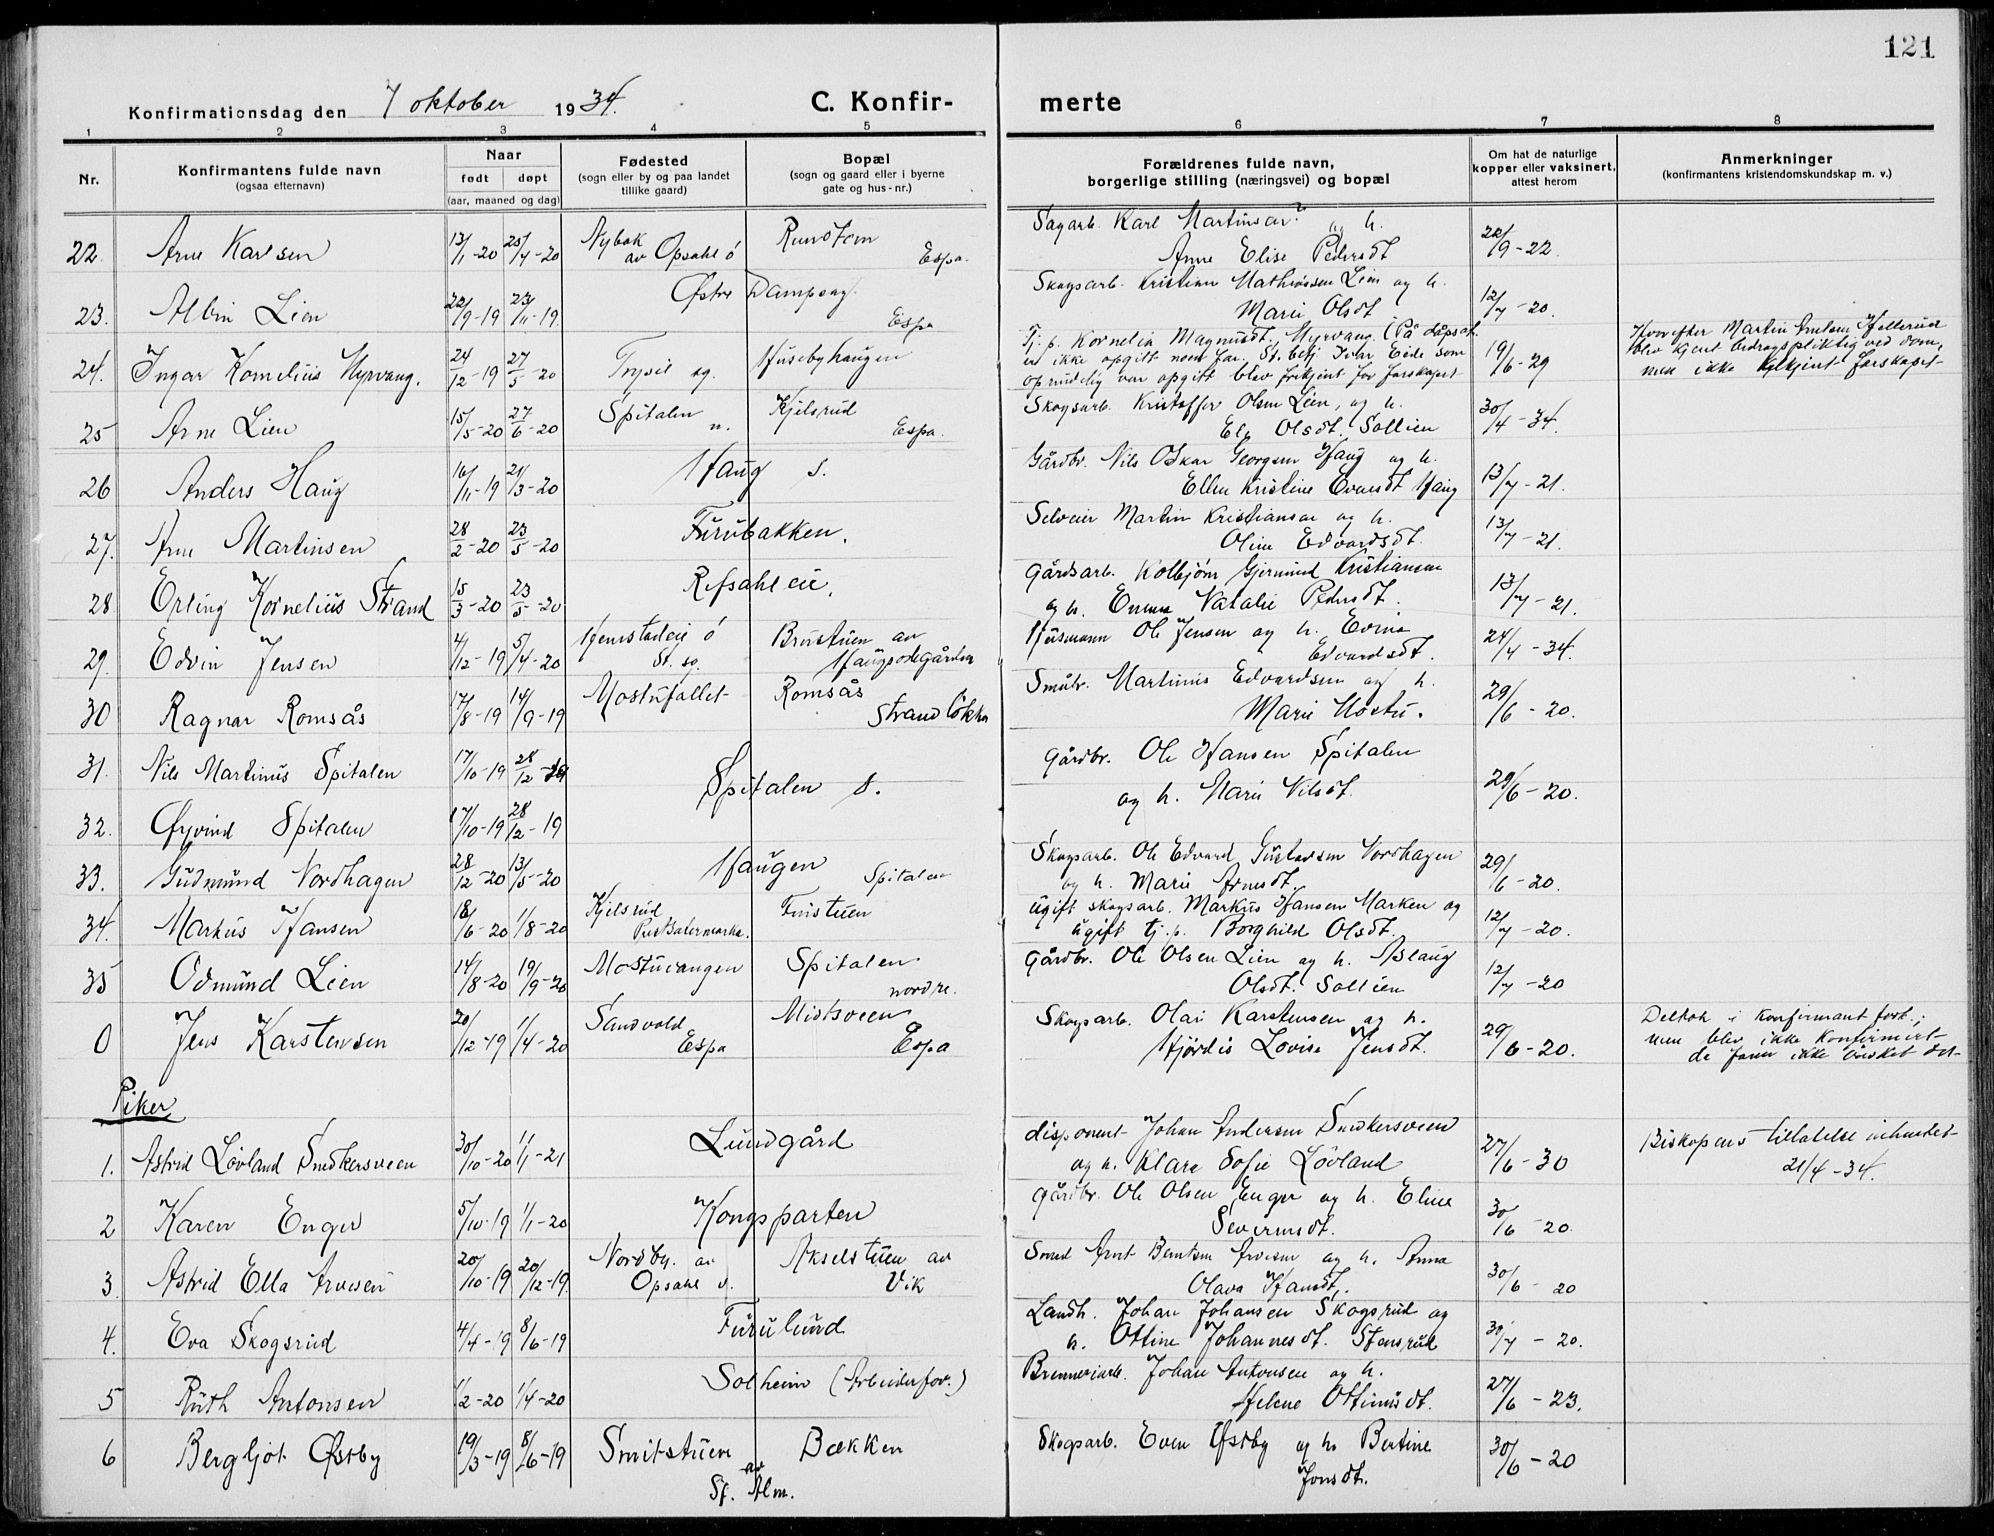 121
Konfirmationsdag den 7 oktober 1934.
C. Konfir-
merte
1 2 3 4 5 6 7 8
Nr.
Konfirmantens fulde navn
(ogsaa efternavn)
Naar
født døpt
(aar, maaned og dag)
Fødested
(sogn eller by og paa landet
tillike gaard)
Bopæl
(sogn og gaard eller i byerne
gate og hus-nr.)
Forældrenes fulde navn,
borgerlige stilling (næringsvei) og bopæl
Om hat de naturlige
kopper eller vaksinert,
attest herom
Anmerkninger
(konfirmantens kristendomskundskap m. v.)
22. Arne Karlsen 13/1-20 25/4-20 Nybak av Opsahl ø Espa.
Sagarb. Karl Martinsen og h.
Anne Elise Pedersdt 22/9-22
23. Albin Lien 22/9-19 23/11-19. Østre Dampsag. Espa
Skogsarb. Kristian Mathiassen Lien og h.
Marie Olsdt 12/7-20.
24. Ingar Kornelius Myrvang. 24/12-19 27/5-20 Trysil sg. Husebyhaugen
Tj. p. Kornelia Magnusdt. Myrvang. (På dåpsat.
er ikke opgitt noen far. St. betj. Eide som
oprindelig var opgitt blev frikjent for farskapet 19/6-29
blev kjent bidragspliktig ved dom,
men ikke farskapet
25 Arne Lien 15/5-20 27/6-20 Spitalen n. Kjelsrud Espa.
Skogsarb. Kristoffer Olsen Lien, og h.
Olsdt. Sollien 30/4-34.
26 Anders Haug 16/11-19 21/3-20 Haug s.
Gårdbr. Nils Oskar Georgsen Haug og h.
Ellen Kristine Evensdt Haug 13/7-21.
27. Arne Martinsen 28/2-20 23/5-20 Furubakken.
Selveier Martin Kristiansen og h.
Oline Edvardsdt. 13/7-21.
28 Erling Kornelius Strand 15/3-20 23/5-20 Refsahleie.
Gårdsarb. Kolbjørn Gjermund Kristiansen
og h. Emma Natalie Pedersdt. 13/7-21.
29. Edvin Jensen 4/12-19 5/4-20 Hemstadeie ø St. sg. Brustuen av Haugsødegården
Husmann Ole Jensen og h. Evine
Edvardsdt. 24/4-34.
30 Ragnar Romsås 17/8-19 14/9-19 Mostufallet Romsås Strandløkka
Småbr. Martinus Edvardsen og h.
Marie Mostu. 29/6-20.
31. Nils Martinus Spitalen 17/10-19 28/12-19
Spitalen s.
Gårdbr. Ole Hansen Spitalen
og h. Marie Nilsdt. 29/6-20.
32. Øyvind Spitalen 17/10-19 28/12-19
33. Gudmund Nordhagen 28/12-20 13/5-20 Haugen Spitalen
Skogsarb. Ole Edvard Gustavsen Nordhagen
og h. Marie Arnesdt. 29/6-20.
34. Markus Hansen 18/6-20 1/8-20 Kjelsrud Finstuen
Ugift skogsarb. Markus Hansen Marken og
ugift tj. p. Borghild Olsdt. 12/7-20.
35 Odmund Lien 14/8-20 19/9-20 Mostuvangen Spitalen nordre.
Gårdbr. Ole Olsen Lien og h. Aslaug
Olsdt. Sollien 12/7-20
0 Jens Karstensen 20/12-19 1/4-20 Sandvold Espa Mistsveen Espa
Skogsarb. Olai Karstensen og h.
Hjørdis Lovise Jensdt. 29/6-20.
Deltok i konfirmant forb.;
men blev ikke konfirmert
da faren ikke ønsket det
Piker
1. Astrid Løvland Snekersveen 30/10-20 1/1-21 Lundgård
disponent Johan Andersen Snekersveen
og h. Klara Sofie Løvland 27/6-30
Biskopens tillatelse innhentet
21/4-34.
2 Karen Enger 5/10-19 1/1-20 Kongsparten
Gårdbr. Ole Olsen Enger og h. Eline
Severinsdt. 30/6-20.
3 Astrid Ella Arnesen 20/10-19 20/12-19. Nordby. av Opsahl v. Akselstuen av Vik
Smed Arnt Berntsen Arnesen og h. Anna
Olava Hansdt. 30/6-20
4. Eva Skogsrud 4/4-19 8/6-19 Furulund
Landh. Johan Johansen Skogsrud og
h. Ottine Johannesdt. Stensrud 31/7-20.
5 Ruth Antonsen 1/2-20 1/4-20 Solheim (Arbeiderfor.)
Brenneriarb. Johan Antonsen og h.
Helene Ottinusdt. 27/6-23.
6 Bergljot Østby 19/3-19 8/6-19 Smitstuen av Sf. Alm. Bækken
Skogsarb. Even Østby og h. Bertine
Jonsdt. 30/6-20